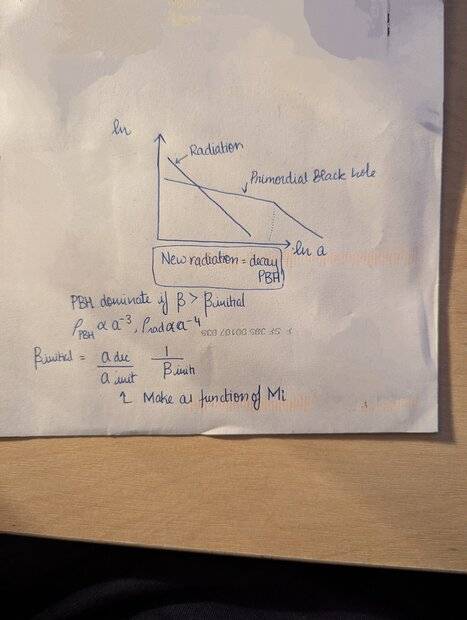 ln
Radiation
Primordial Black hole
ln a
New radiation = decay
PBH
PBH dominate if β > βinitial
ρPBH ∝ a⁻³, ρrad ∝ a⁻⁴
βinitial = a dec / a init 1 / βinit
Make as function of Mi